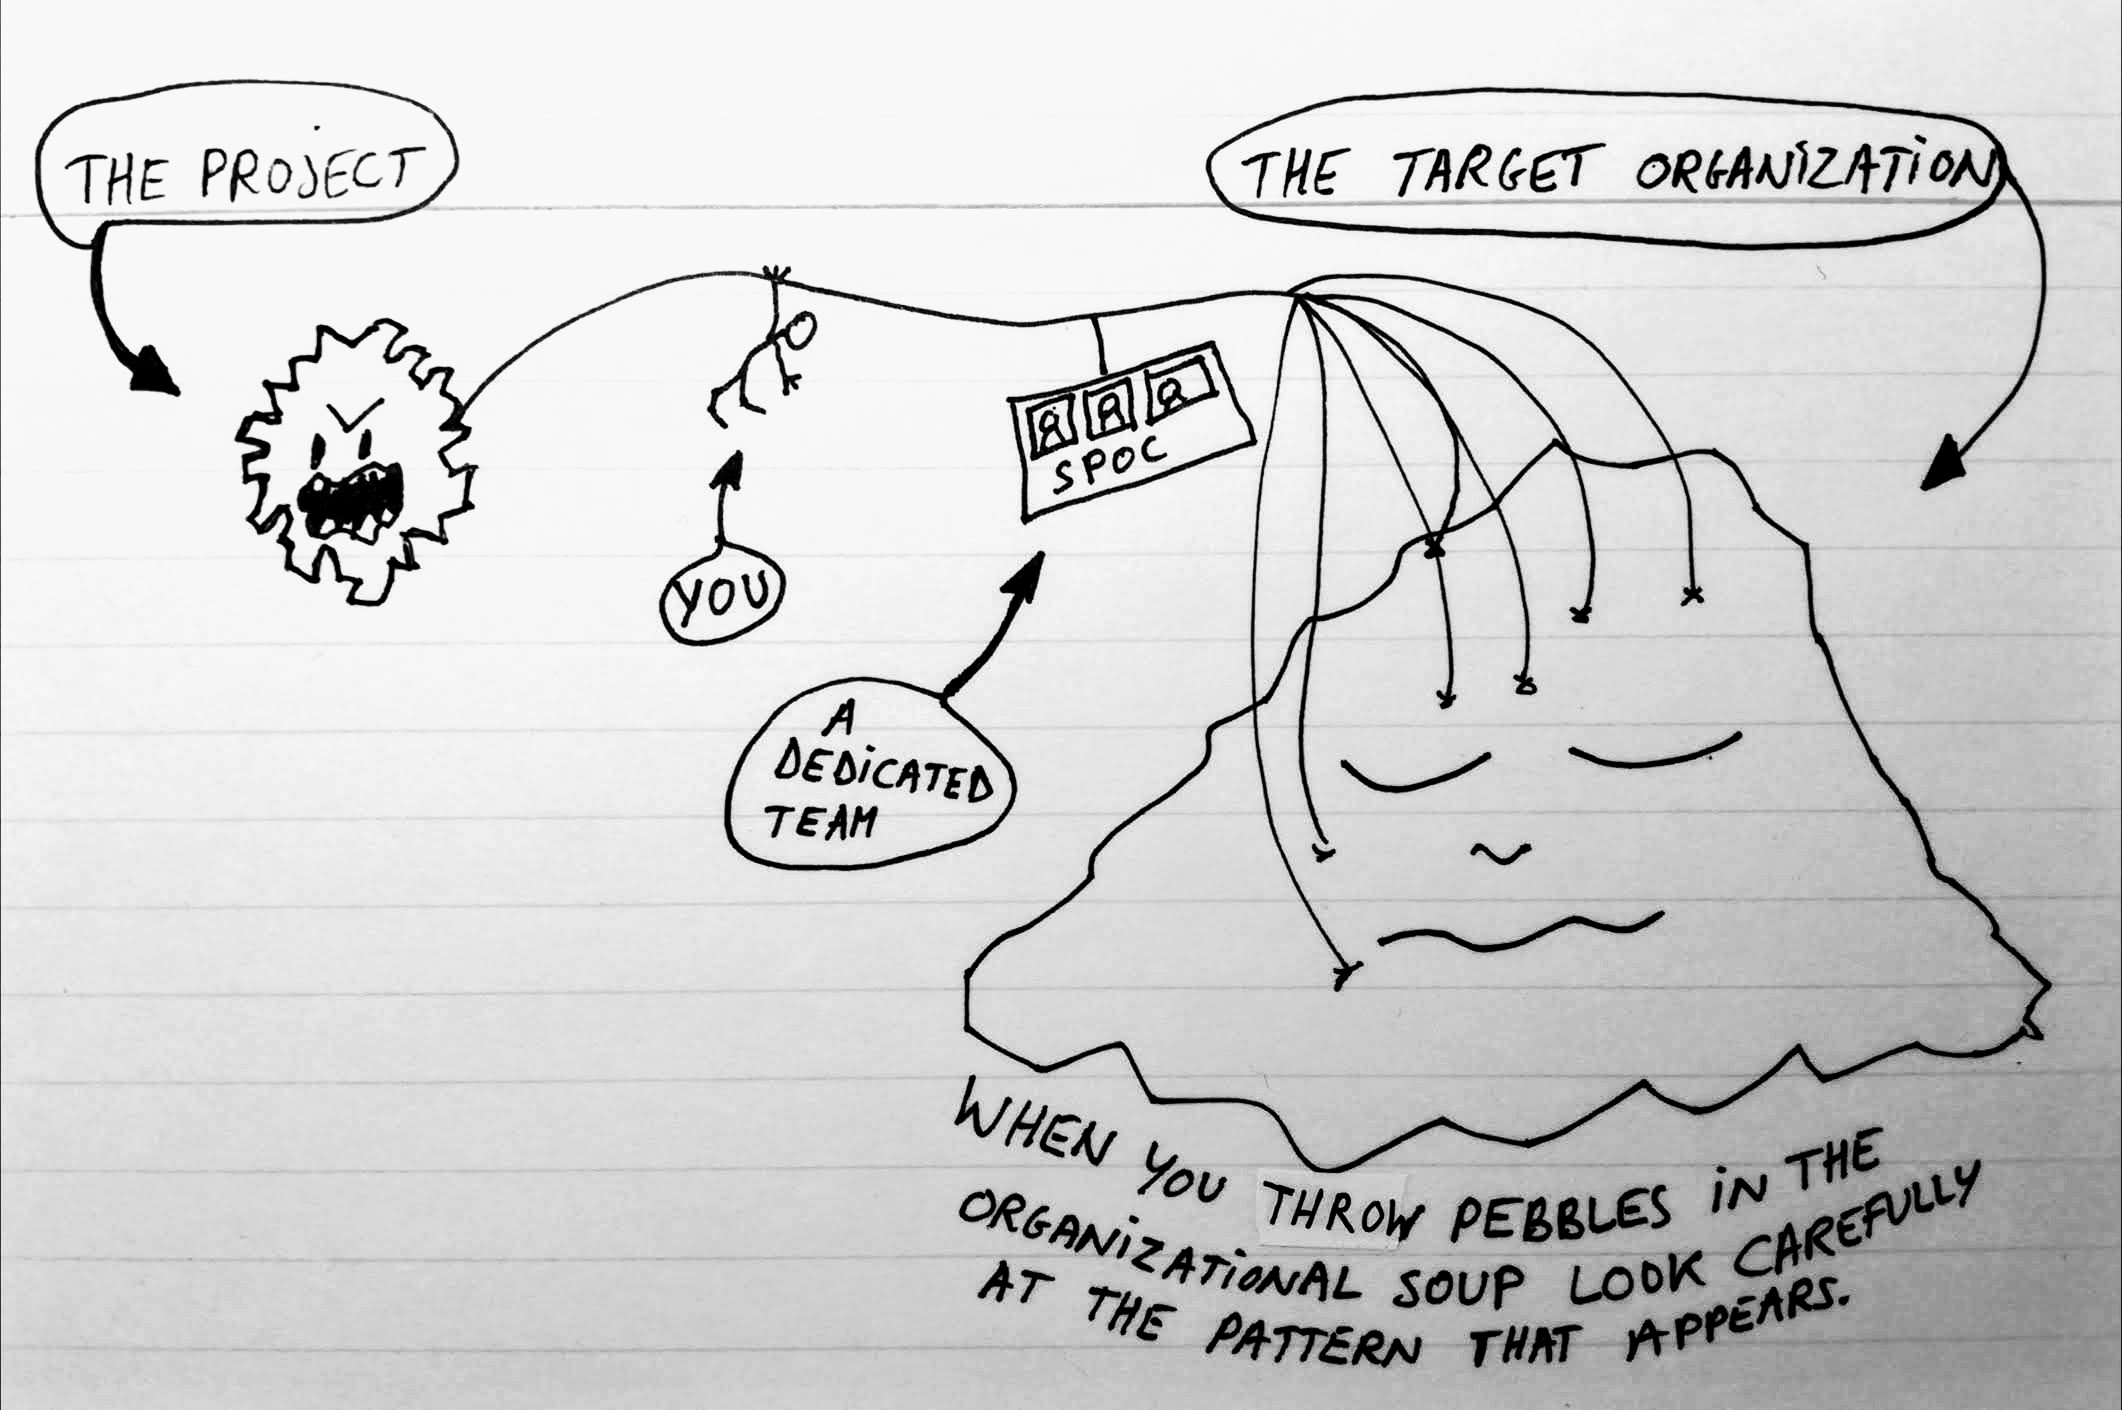 THE PROJECT
THE TARGET ORGANIZATION
YOU
SPOC
A
DEDICATED
TEAM
WHEN YOU THROW PEBBLES IN THE
ORGANIZATIONAL SOUP LOOK CAREFULLY
AT THE PATTERN THAT APPEARS.